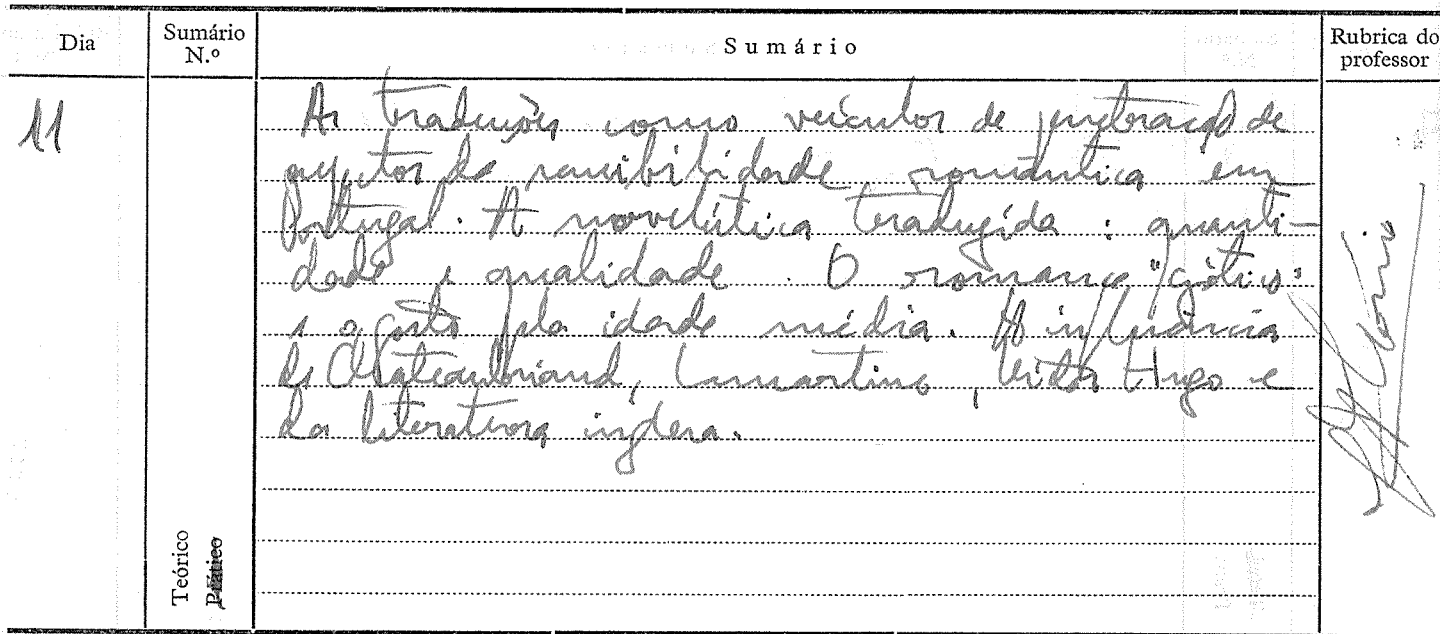 Dia
Sumário
N.º
Sumário
Rubrica do
professor
11
As traduções como veículos de penetração de
aspectos da sensibilidade romântica em
Portugal. A novelística traduzida: quanti-
dade e qualidade. O romance "gótico"
e o gosto pela idade média. A influência
de Chateaubriand, Lamartine, Victor Hugo e
da literatura inglesa.
Teórico
Prático